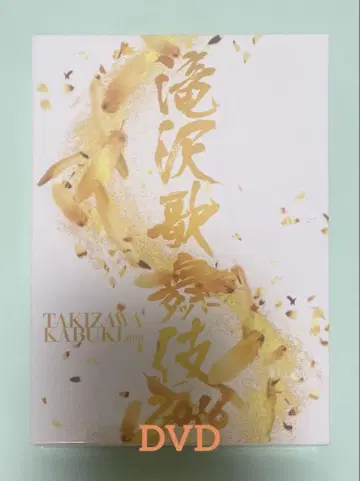 滝沢歌舞伎
2016
TAKIZAWA
KABUKI 2016
DVD